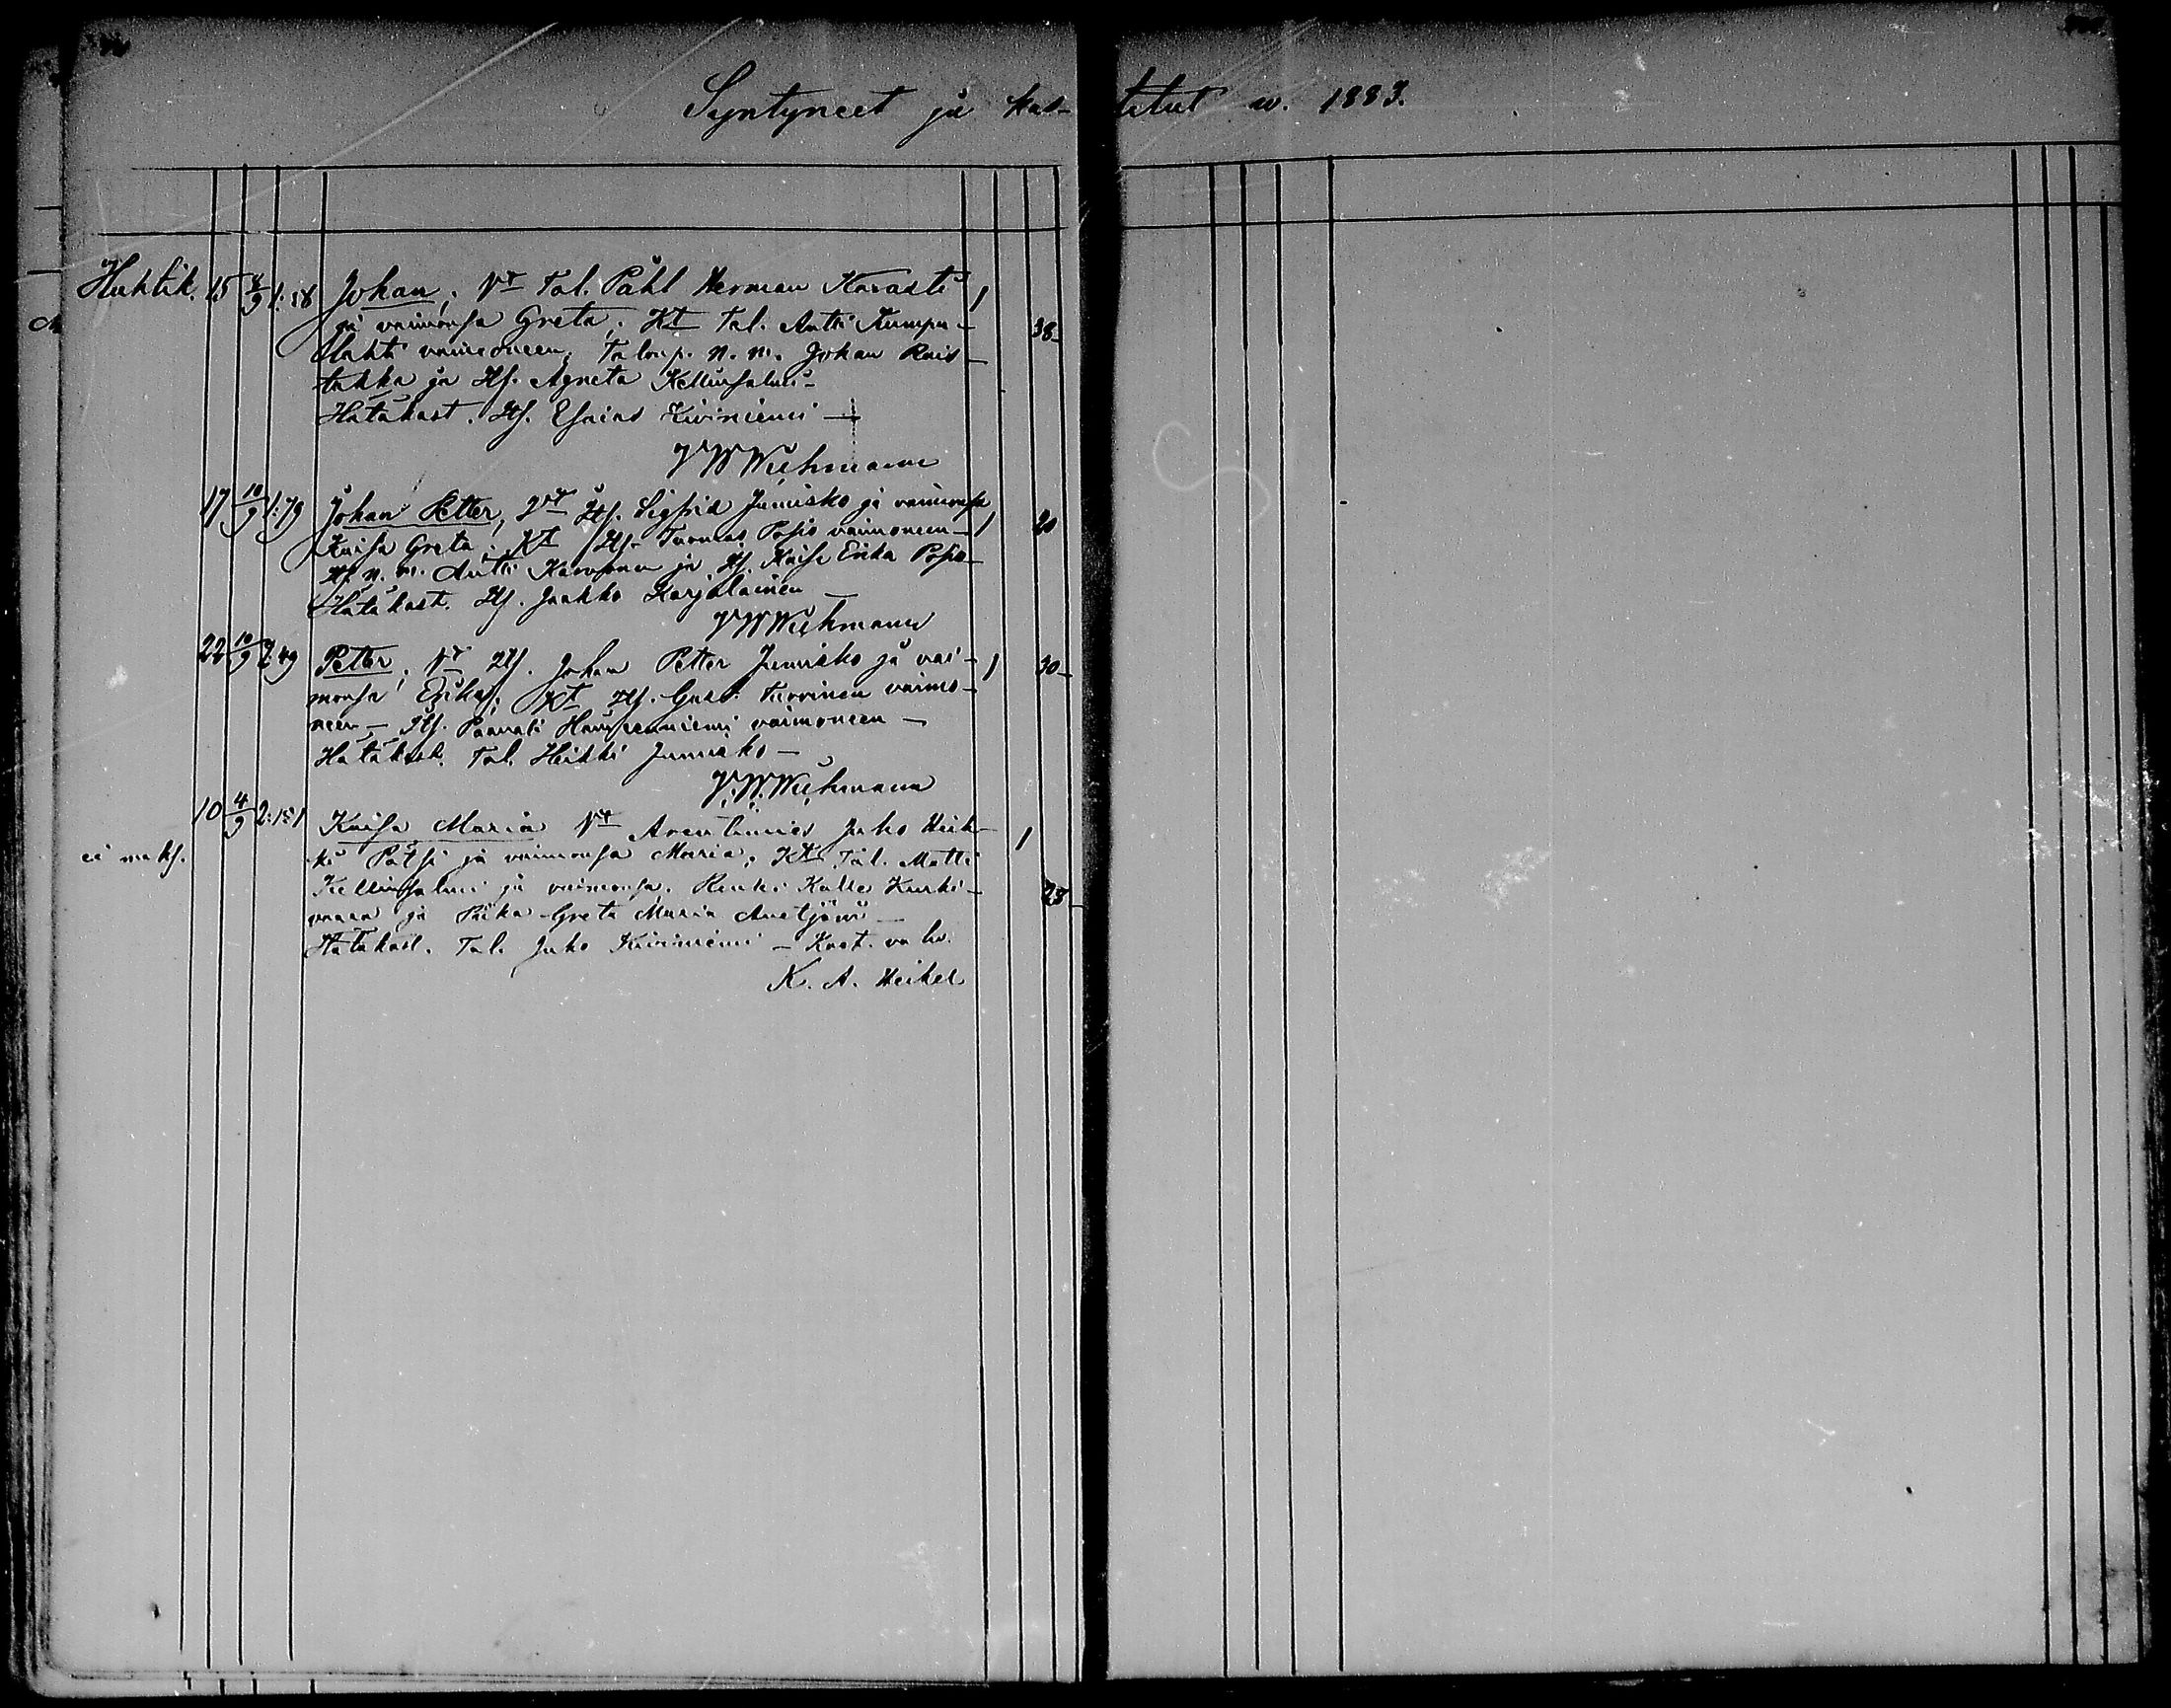 Syntyneet ja kas- tetut w. 1883.
Huhtik. 15 8/9 1:18 Johan; Vt Tal. Påhl Herman Karasti 1
ja vaimonsa Greta; Kt Tal. Antti Kumpu- 38
lahti vaimoneen, Talonp. n. m. Johan Rais-
takka ja Itf. Agneta Kellinsalmi-
Hätäkast. Itf. Esaias Kiviniemi —
V W Wichmann
17 10/9 1:79 Johan Petter, Vt Itf. Sigfrid Jumisko ja vaimonsa
Kaisa Greta; Kt Itf. Tuomas Posio vaimoneen - 1 20
Itf. n. m. Antti ja Itf. Kaisa Erika Posio-
Hätäkast. Itf. Jaakko Karjalainen —
V W Wichmann
22 10/9 2:49 Petter; Vt Itf. Johan Petter Jumisko ja vai- 1 30
monsa Erika; Kt Itf. Gust. Tervinen vaimo-
neen, - Itf. Paavali vaimoneen —
Hätäkast. Tal. Heikki Jumisko —
V. W. Wichmann
10 4/9 2:151 Kaisa Maria Vt Juho Heik- 1
ei maks. ki Pätsi ja vaimonsa Maria; Kt Tal. Matti
Kellinsalmi ja vaimonsa. Renki Kalle Kurki- 28
vaara ja Piika Greta Maria Auetjärvi —
Hätäkast. Tal. Juho Kiviniemi - Kast. va hv.
K. A. Heikel